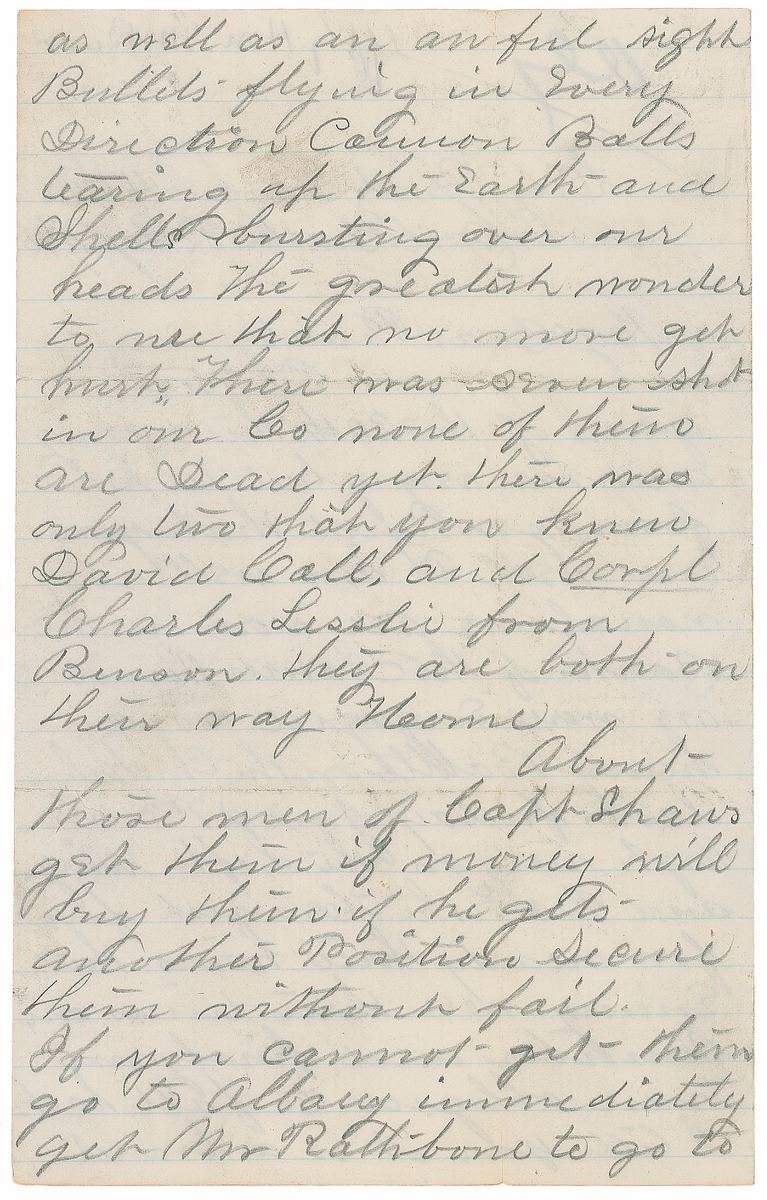 as well as an awful sight
Bullets flying in Every
Direction Cannon Balls
tearing up the Earth and
Shells bursting over our
heads the greatest wonder
to me that no more get
hurt, There was seven shot
in our Co none of them
are Dead yet. there was
only two that you knew
David Call, and Corpl
Charles Lesslie from
Benson. they are both on
their way Home
About
those men of Capt Shaws
get them if money will
buy them. if he gets
another Position Secure
them without fail.
If you cannot get them
go to Albany immediately
get Mr Rathbone to go to